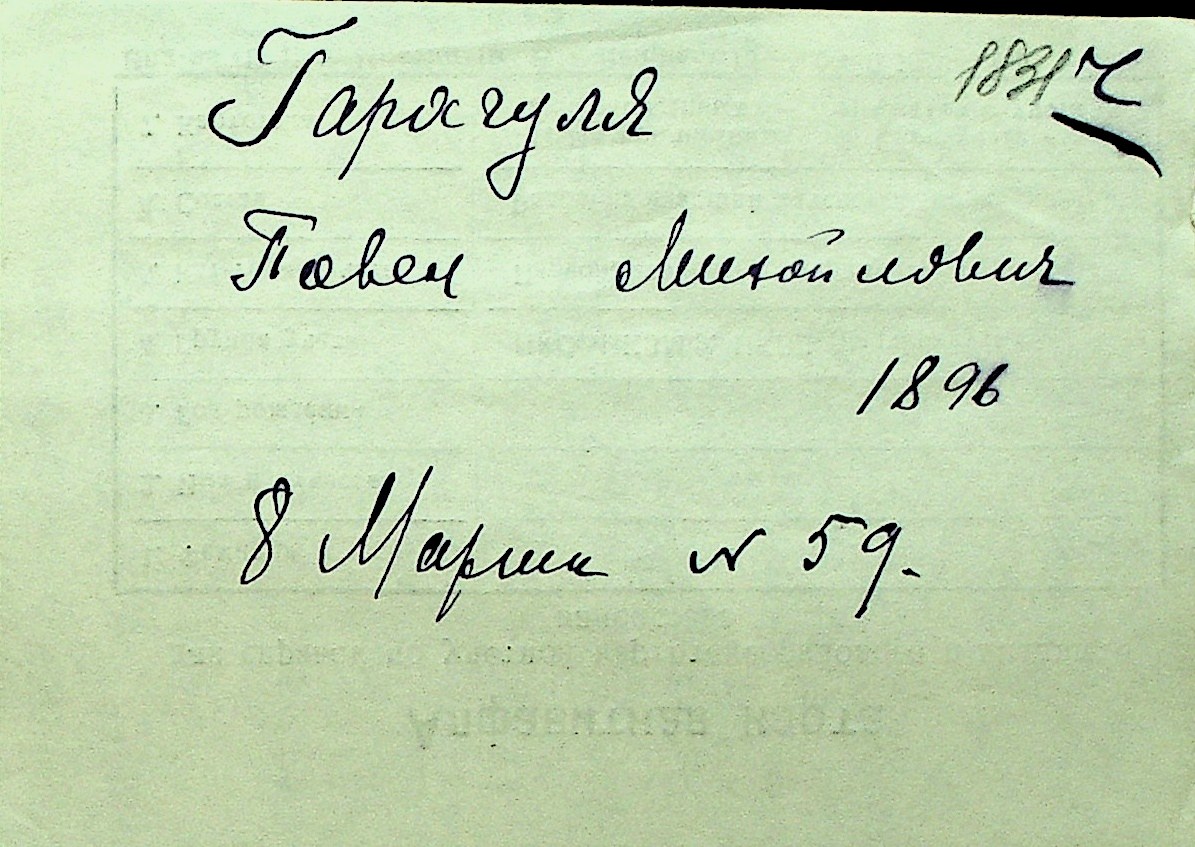 1831 ч
Гарагуля
Павел Михайлович
1896
8 Марта № 59.